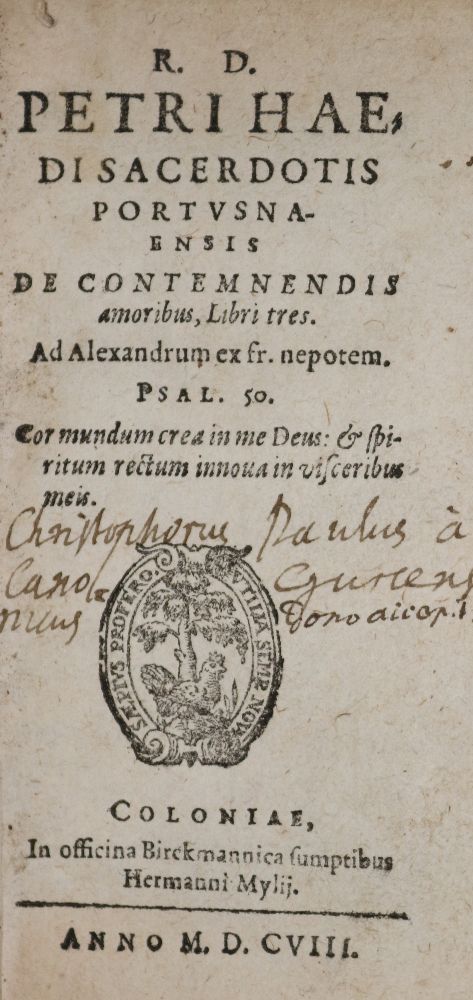 R. D.
PETRI HAE,
DI SACERDOTIS
PORTVSNA-
ENSIS
DE CONTEMNENDIS
amoribus, Libri tres.
Ad Alexandrum ex fr. nepotem.
PSAL. 50.
Cor mundum crea in me Deus: & spi-
ritum rectum innoua in visceribus
meis.
Christophorus Paulus à
Cano
nicus
Gurcens
Dono
SÆPIVS PROFERO VTILIA SEMP. NOVA
COLONIAE,
In officina Birckmannica sumptibus
Hermanni Mylij.
ANNO M. D. CVIII.